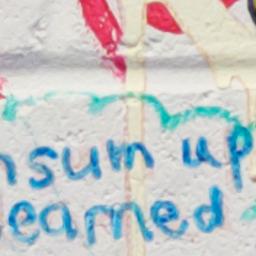 nsum up
earned